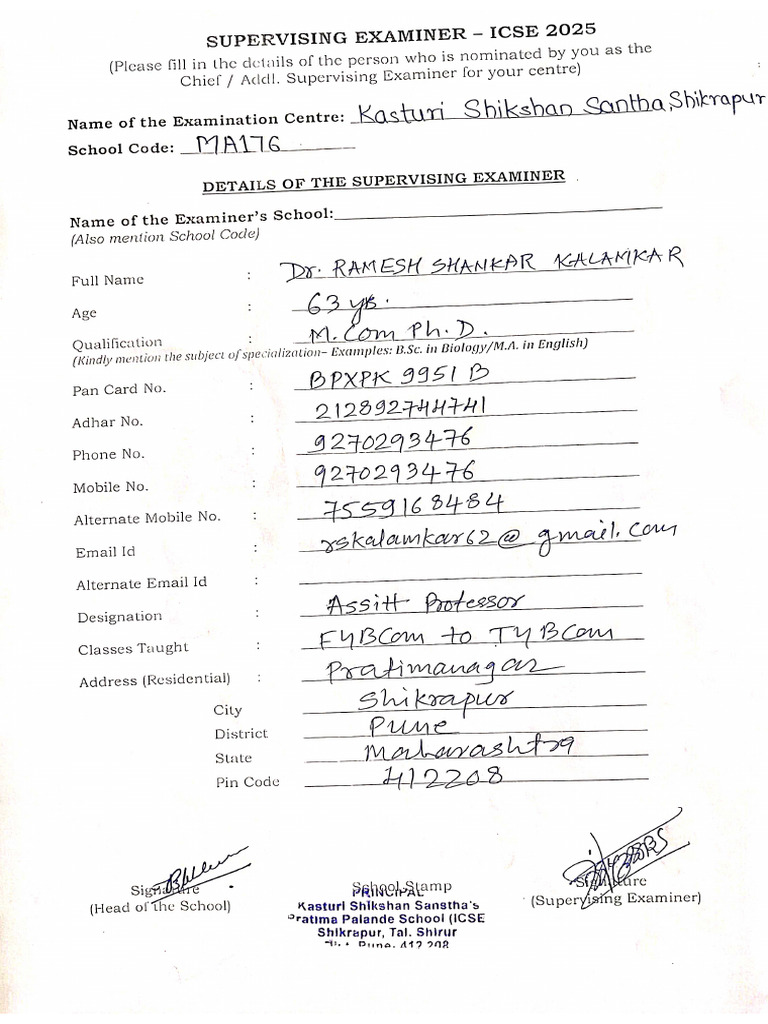 SUPERVISING EXAMINER – ICSE 2025
(Please fill in the details of the person who is nominated by you as the
Chief / Addl. Supervising Examiner for your centre)
Name of the Examination Centre: Kasturi Shikshan Santha, Shikrapur
School Code: MA176
DETAILS OF THE SUPERVISING EXAMINER
Name of the Examiner's School:
(Also mention School Code)
Full Name : Dr. RAMESH SHANKAR KALAMKAR
Age : 63 yrs.
Qualification : M.Com Ph.D.
(Kindly mention the subject of specialization– Examples: B.Sc. in Biology/M.A. in English)
Pan Card No. : BPXPK 9951 B
Adhar No. : 212892744741
Phone No. : 9270293476
Mobile No. : 9270293476
Alternate Mobile No. : 7559168484
Email Id : rskalamkar62@gmail.com
Alternate Email Id :
Designation : Assitt Professor
Classes Taught : FYBCom to TYBCom
Address (Residential) : Pratimanagar
City Shikrapur
District Pune
State Maharashtra
Pin Code 412208
Signature School Stamp Signature
(Head of the School) PRINCIPAL (Supervising Examiner)
Kasturi Shikshan Sanstha's
Pratima Palande School (ICSE
Shikrapur, Tal. Shirur
Pune. 412 208